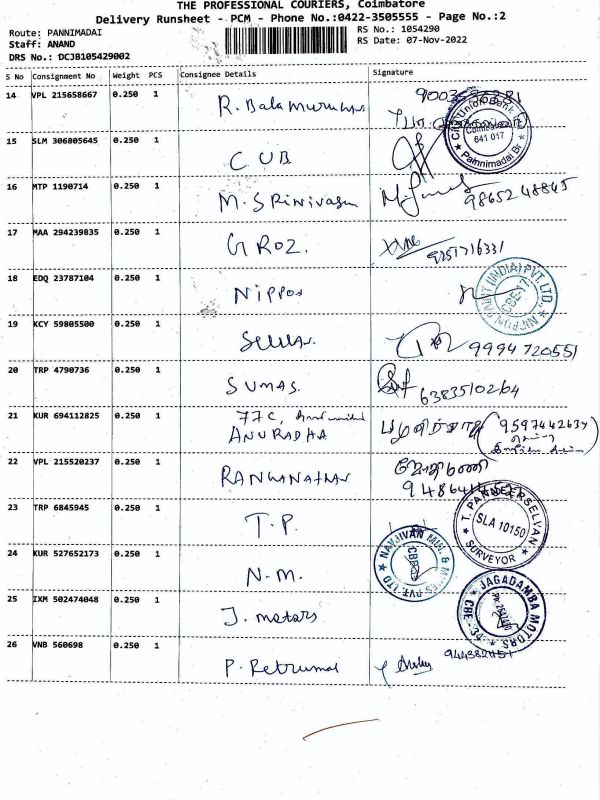 THE PROFESSIONAL COURIERS, Coimbatore
Delivery Runsheet - PCM - Phone No.:0422-3505555 - Page No.:2
Route: PANNIMADAI
RS No.: 1054290
Staff: ANAND
RS Date: 07-Nov-2022
DRS No.: DCJB105429002
S No Consignment No Weight PCS Consignee Details Signature
14 VPL 215658667 0.250 1 R. Bala
City Union Bank
Coimbatore
641 017
Pannimadai Br
15 SLM 306805645 0.250 1 CUB
16 MTP 1190714 0.250 1 M. SRinivasan 9865248845
17 MAA 294239835 0.250 1 GROZ.
18 EDQ 23787104 0.250 1 Nippon
NIPPON PAINT (INDIA) PVT. LTD.,
CBE-17
19 KCY 59805500 0.250 1 9994720551
20 TRP 4790736 0.250 1 SUMAS. 6383510264
21 KUR 694112825 0.250 1 77C,
ANURADHA 9597442634
22 VPL 215520237 0.250 1
23 TRP 6845945 0.250 1 T.P.
T. PANNEERSELVAN
SLA 10150
SURVEYOR
24 KUR 527652173 0.250 1 N.M.
NANJIVAN MIN. & MINES PVT. LTD
25 IXM 502474048 0.250 1 J. motors
JAGADAMBA MOTORS
CBE-34
26 VNB 560698 0.250 1 P. Perumal